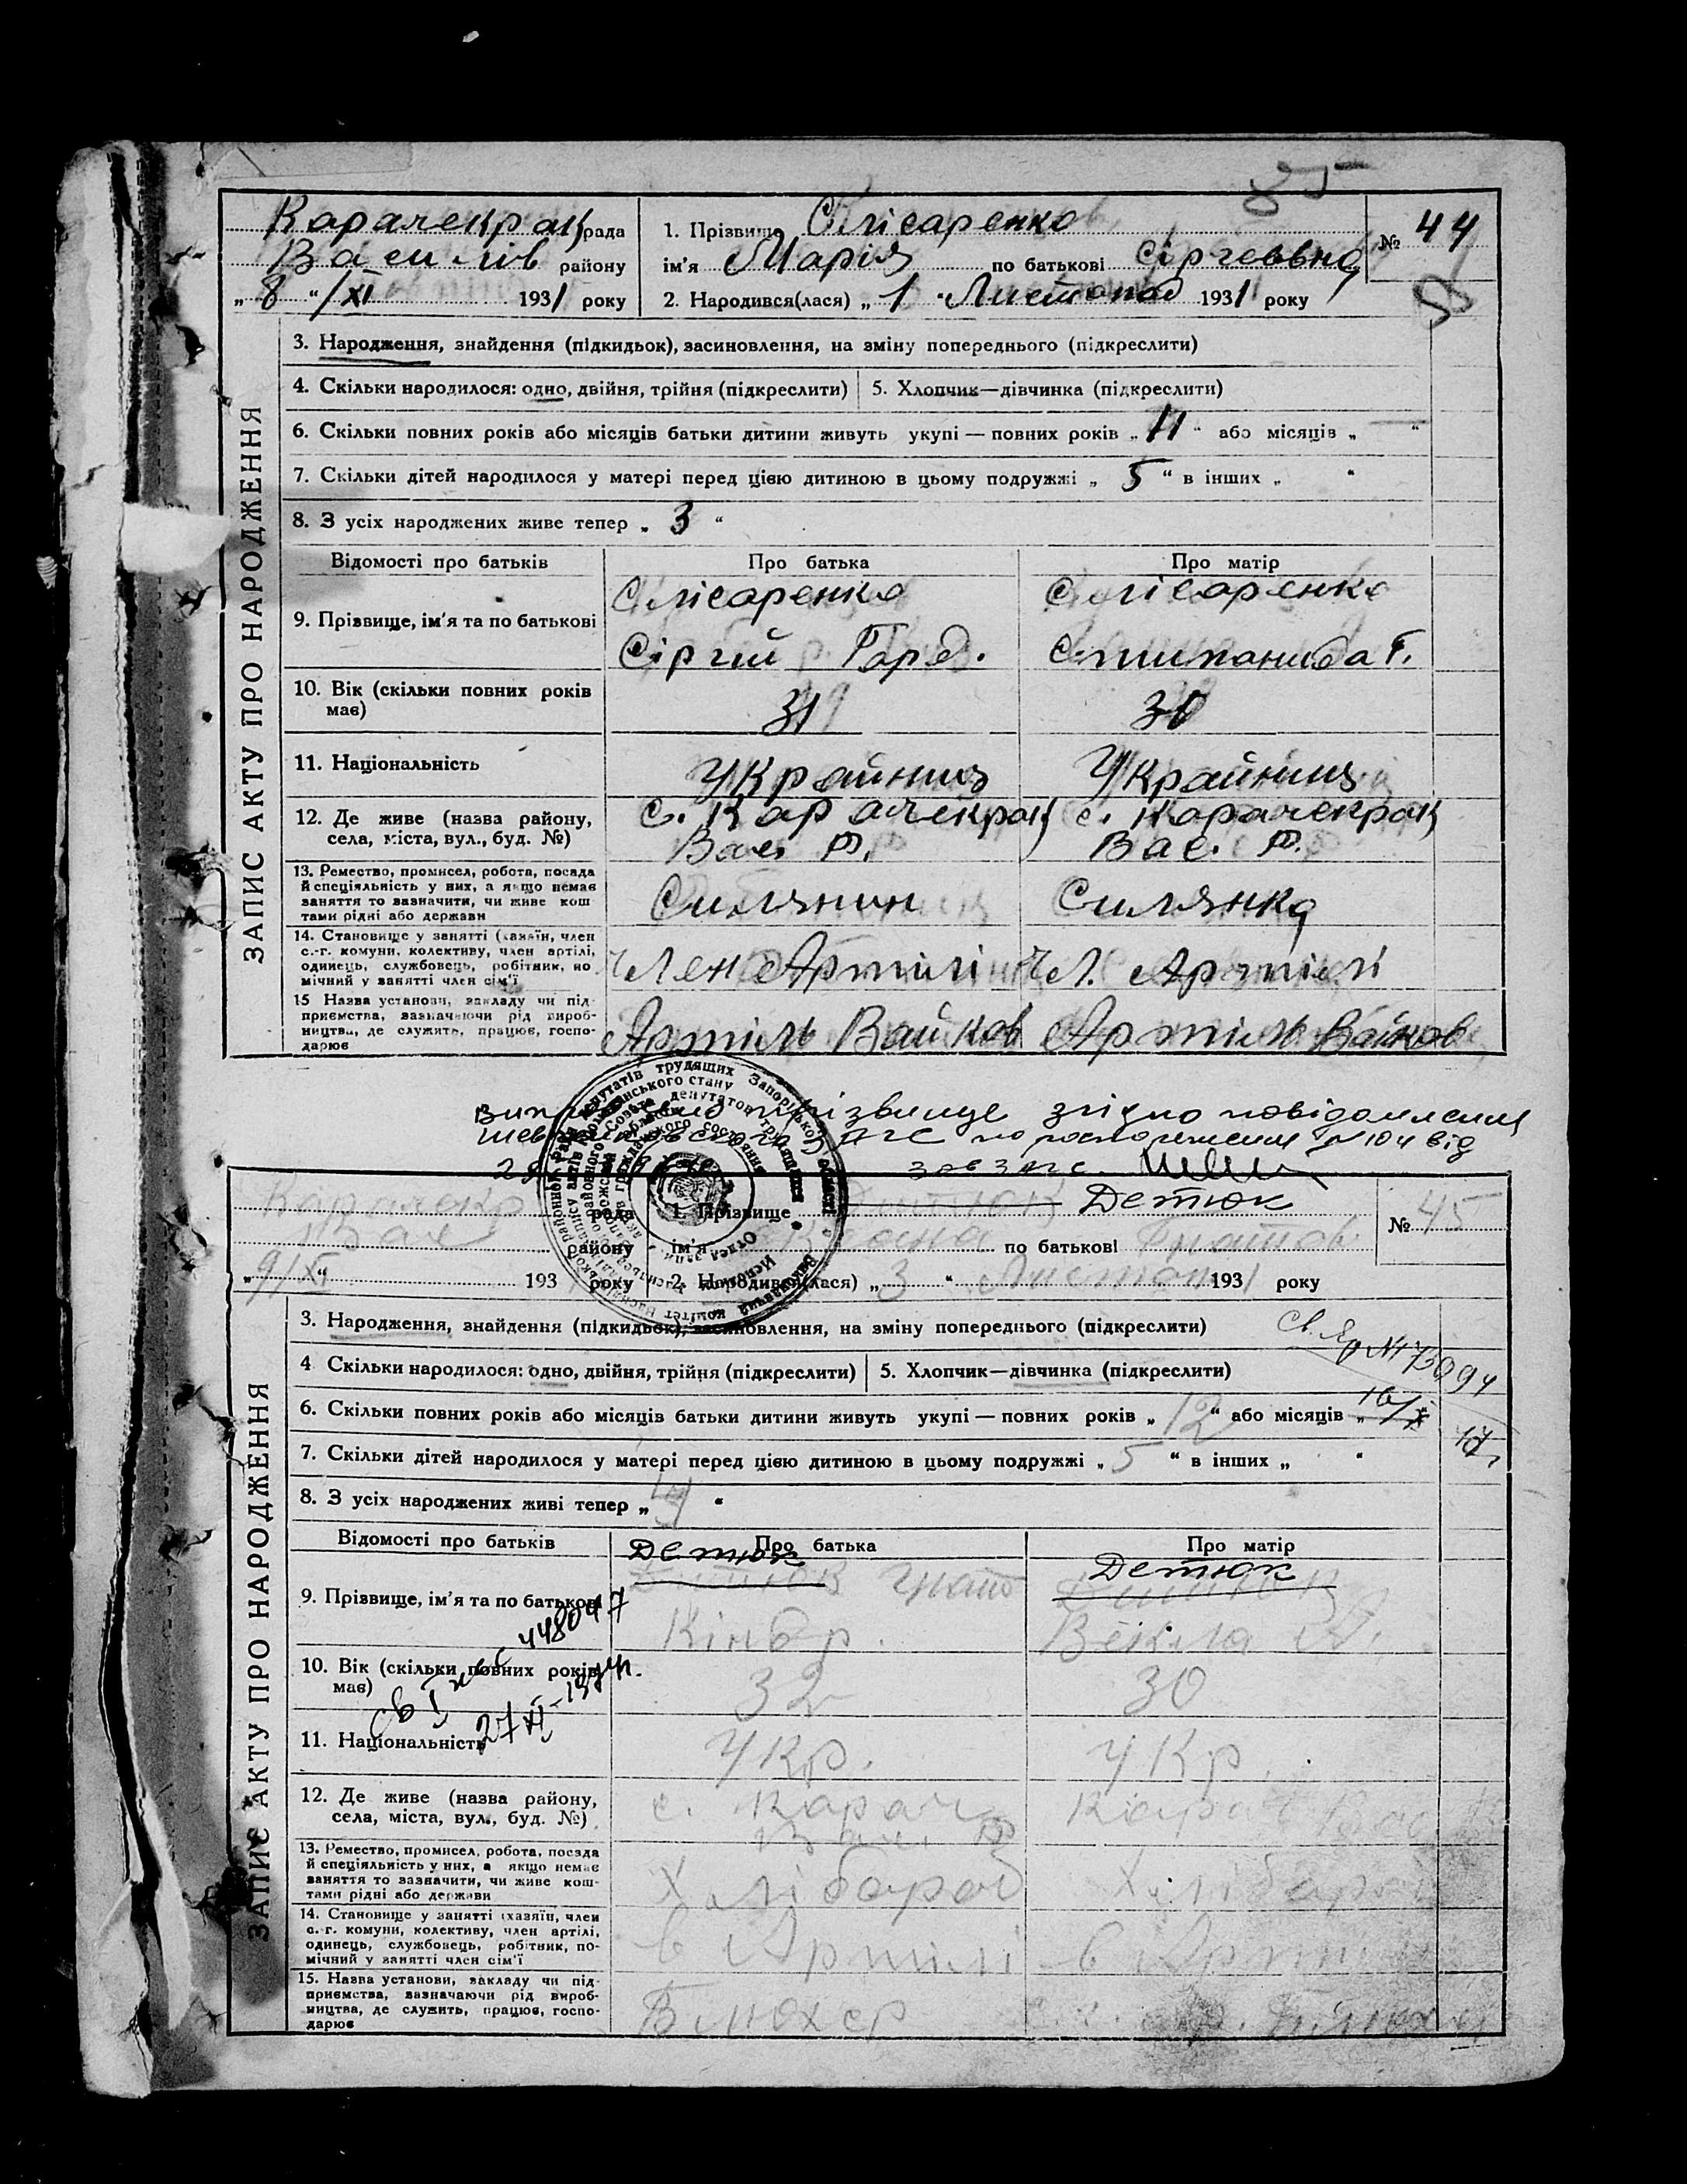 85
Карачекрак рада
Василів району
„ 8 “ /XI 1931 року
1. Прізвище Слісаренко
ім'я Марія по батькові Сіргеевна
2. Народився(лася) „ 1 “ Листопад 1931 року
№ 44
ЗАПИС АКТУ ПРО НАРОДЖЕННЯ
3. Народження, знайдення (підкидьок), засиновлення, на зміну попереднього (підкреслити)
4. Скільки народилося: одно, двійня, трійня (підкреслити) 5. Хлопчик—дівчинка (підкреслити)
6. Скільки повних років або місяців батьки дитини живуть укупі — повних років „ 11 “ або місяців „ — “
7. Скільки дітей народилося у матері перед цією дитиною в цьому подружжі „ 5 “ в інших „ “
8. З усіх народжених живе тепер „ 3 “
Відомості про батьків Про батька Про матір
9. Прізвище, ім'я та по батькові
Слісаренко Слісаренко
Сіргий Горд. Степанида Г.
10. Вік (скільки повних років має) 31 30
11. Національність Украйниц Украйниц
12. Де живе (назва району, села, міста, вул., буд. №)
с. Карачекрак с. Карачекрак
Вас. Р. Вас. Р.
13. Ремество, промисел, робота, посада
й спеціяльність у них, а якщо немає
заняття то зазначити, чи живе кош
тами рідні або держави
Силянин Силянка
14. Становище у занятті (хазяїн, член
с.-г. комуни, колективу, член артілі,
одинець, службовець, робітник, по
мічний у занятті член сім'ї
Член Артілі Чл. Артілі
15 Назва установи, закладу чи під-
приємства, зазначаючи рід вироб-
ництва, де служить, працює, госпо-
дарює
Артіль Вайков Артіль Вайков
прізвище згідно повідомлення
ЗАГС по розпорядженню №104 від
зав загс.
Карачекр рада
Вас району
„ 9/XI “ 193 року
1. Прізвище Детюк
ім'я по батькові Гнатов
2. Народився(лася) „ 3 “ Листоп 1931 року
№ 45
ЗАПИС АКТУ ПРО НАРОДЖЕННЯ
3. Народження, знайдення (підкидьок), засиновлення, на зміну попереднього (підкреслити)
4 Скільки народилося: одно, двійня, трійня (підкреслити) 5. Хлопчик—дівчинка (підкреслити)
6. Скільки повних років або місяців батьки дитини живуть укупі — повних років „ 12 “ або місяців „
7. Скільки дітей народилося у матері перед цією дитиною в цьому подружжі „ 5 “ в інших „ “
8. З усіх народжених живі тепер „ 4 “
Відомості про батьків Про батька Про матір
9. Прізвище, ім'я та по батькові
Детюк Гнат Детюк
Векла
448047
27 XI
10. Вік (скільки повних років має) 32 30
11. Національність Укр. Укр.
12. Де живе (назва району, села, міста, вул., буд. №)
с. Карач Карач Вас
Вас. Р
13. Ремество, промисел, робота, посада
й спеціяльність у них, а якщо немає
заняття то зазначити, чи живе кош-
тами рідні або держави
Хлібороб Хлібороб
14. Становище у занятті (хазяїн, член
с.-г. комуни, колективу, член артілі,
одинець, службовець, робітник, по-
мічний у занятті член сім'ї
в Артілі в Артілі
15. Назва установи, закладу чи під-
приємства, зазначаючи рід вироб-
ництва, де служить, працює, госпо-
дарює